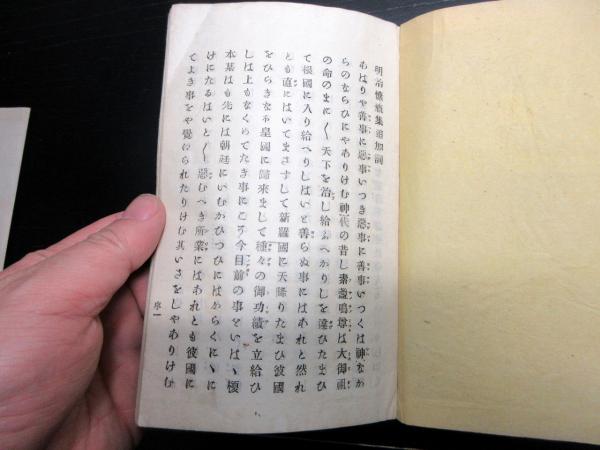 明治懷舊集追加詞
あはりや善事に惡事いつき惡事に善事いつくは神なか
らのならひにやありけむ神代の昔し素盞嗚尊は大御祖
の命のまに〱天下を治し給ふへかりしを違ひたまひ
て根國に入り給へりしはいと善らぬ事にはあれと然れ
とも直にはいてまさすして新羅國に天降りたまひ彼國
をひらきなし皇國に歸來まして種々の御功績を立給ひ
しは上もなくめてたき事にこそ今目前の事をいはゝ榎
本某はも先には朝廷にいむかひつひにはからくにゝに
けにたるはいと〱惡むべき所業にはあれとも彼國に
てよき事をや覺られたりけむ其いさをしやありけむ
序一